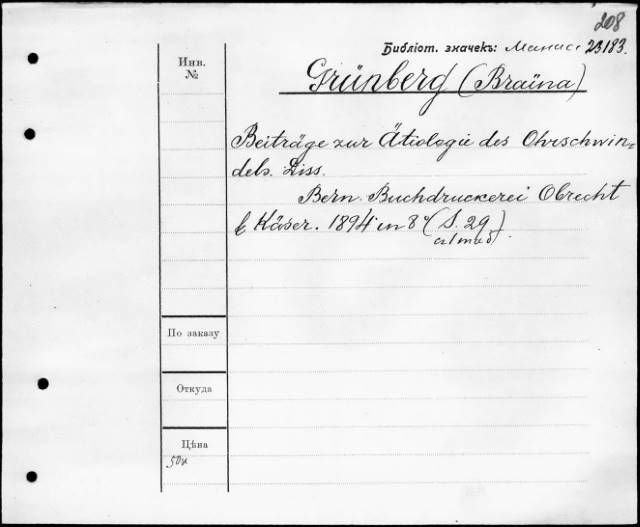 208
Библіот. значекъ: 23183.
Инв.
№
Grünberg (Braïna)
Beiträge zur Ätiologie des Ohrschwin=
dels. Diss.
Bern. Buchdruckerei Obrecht
& Käser. 1894 in 8° (S. 29)
По заказу
Откуда
Цѣна
50к